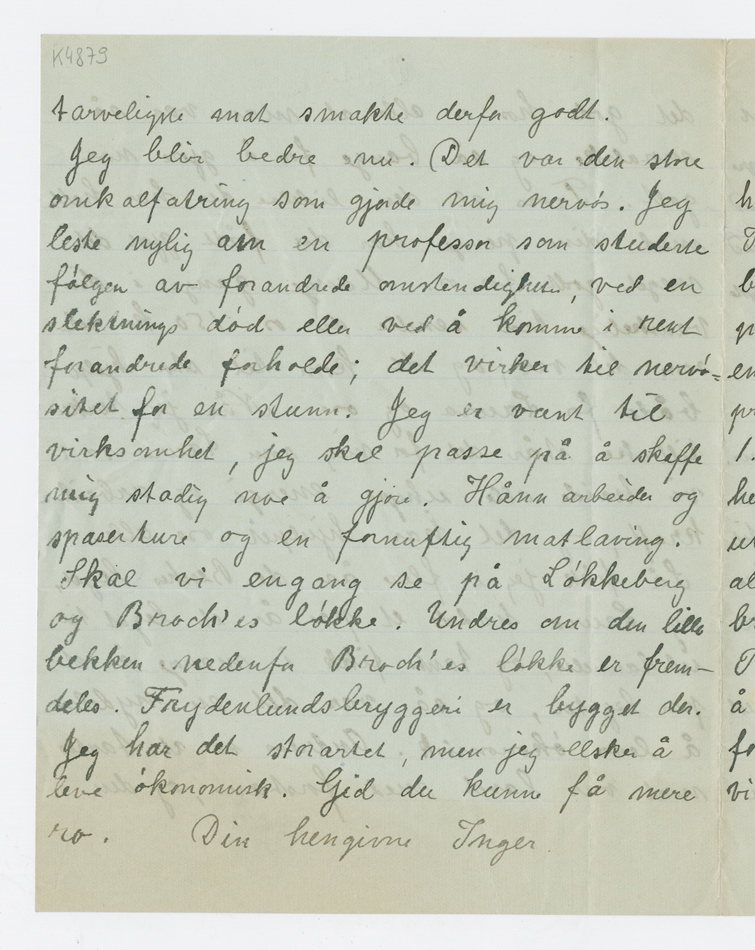 K4879
tarveligste mat smakte derfor godt.
Jeg blir bedre nu. Det var den store
omkalfatring som gjorde mig nervøs. Jeg
leste nylig om en professor som studerte
følgen av forandrede omstendigheter, ved en
slektnings død eller ved å komme i rent
forandrede forholde; det virker til nervø=
sitet for en stunn. Jeg er vant til
virksomhet, jeg skal passe på å skaffe
mig stadig noe å gjøre. Hånnarbeider og
spaserture og en fornuftig matlaving.
Skal vi engang se på Løkkeberg
og Broch'es løkke. Undres om den lille
bekken nedenfor Broch'es løkke er frem-
deles. Frydenlundsbryggeri er bygget der.
Jeg har det storartet, men jeg elsker å
leve økonomisk. Gid du kunne få mere
ro. Din hengivne Inger.